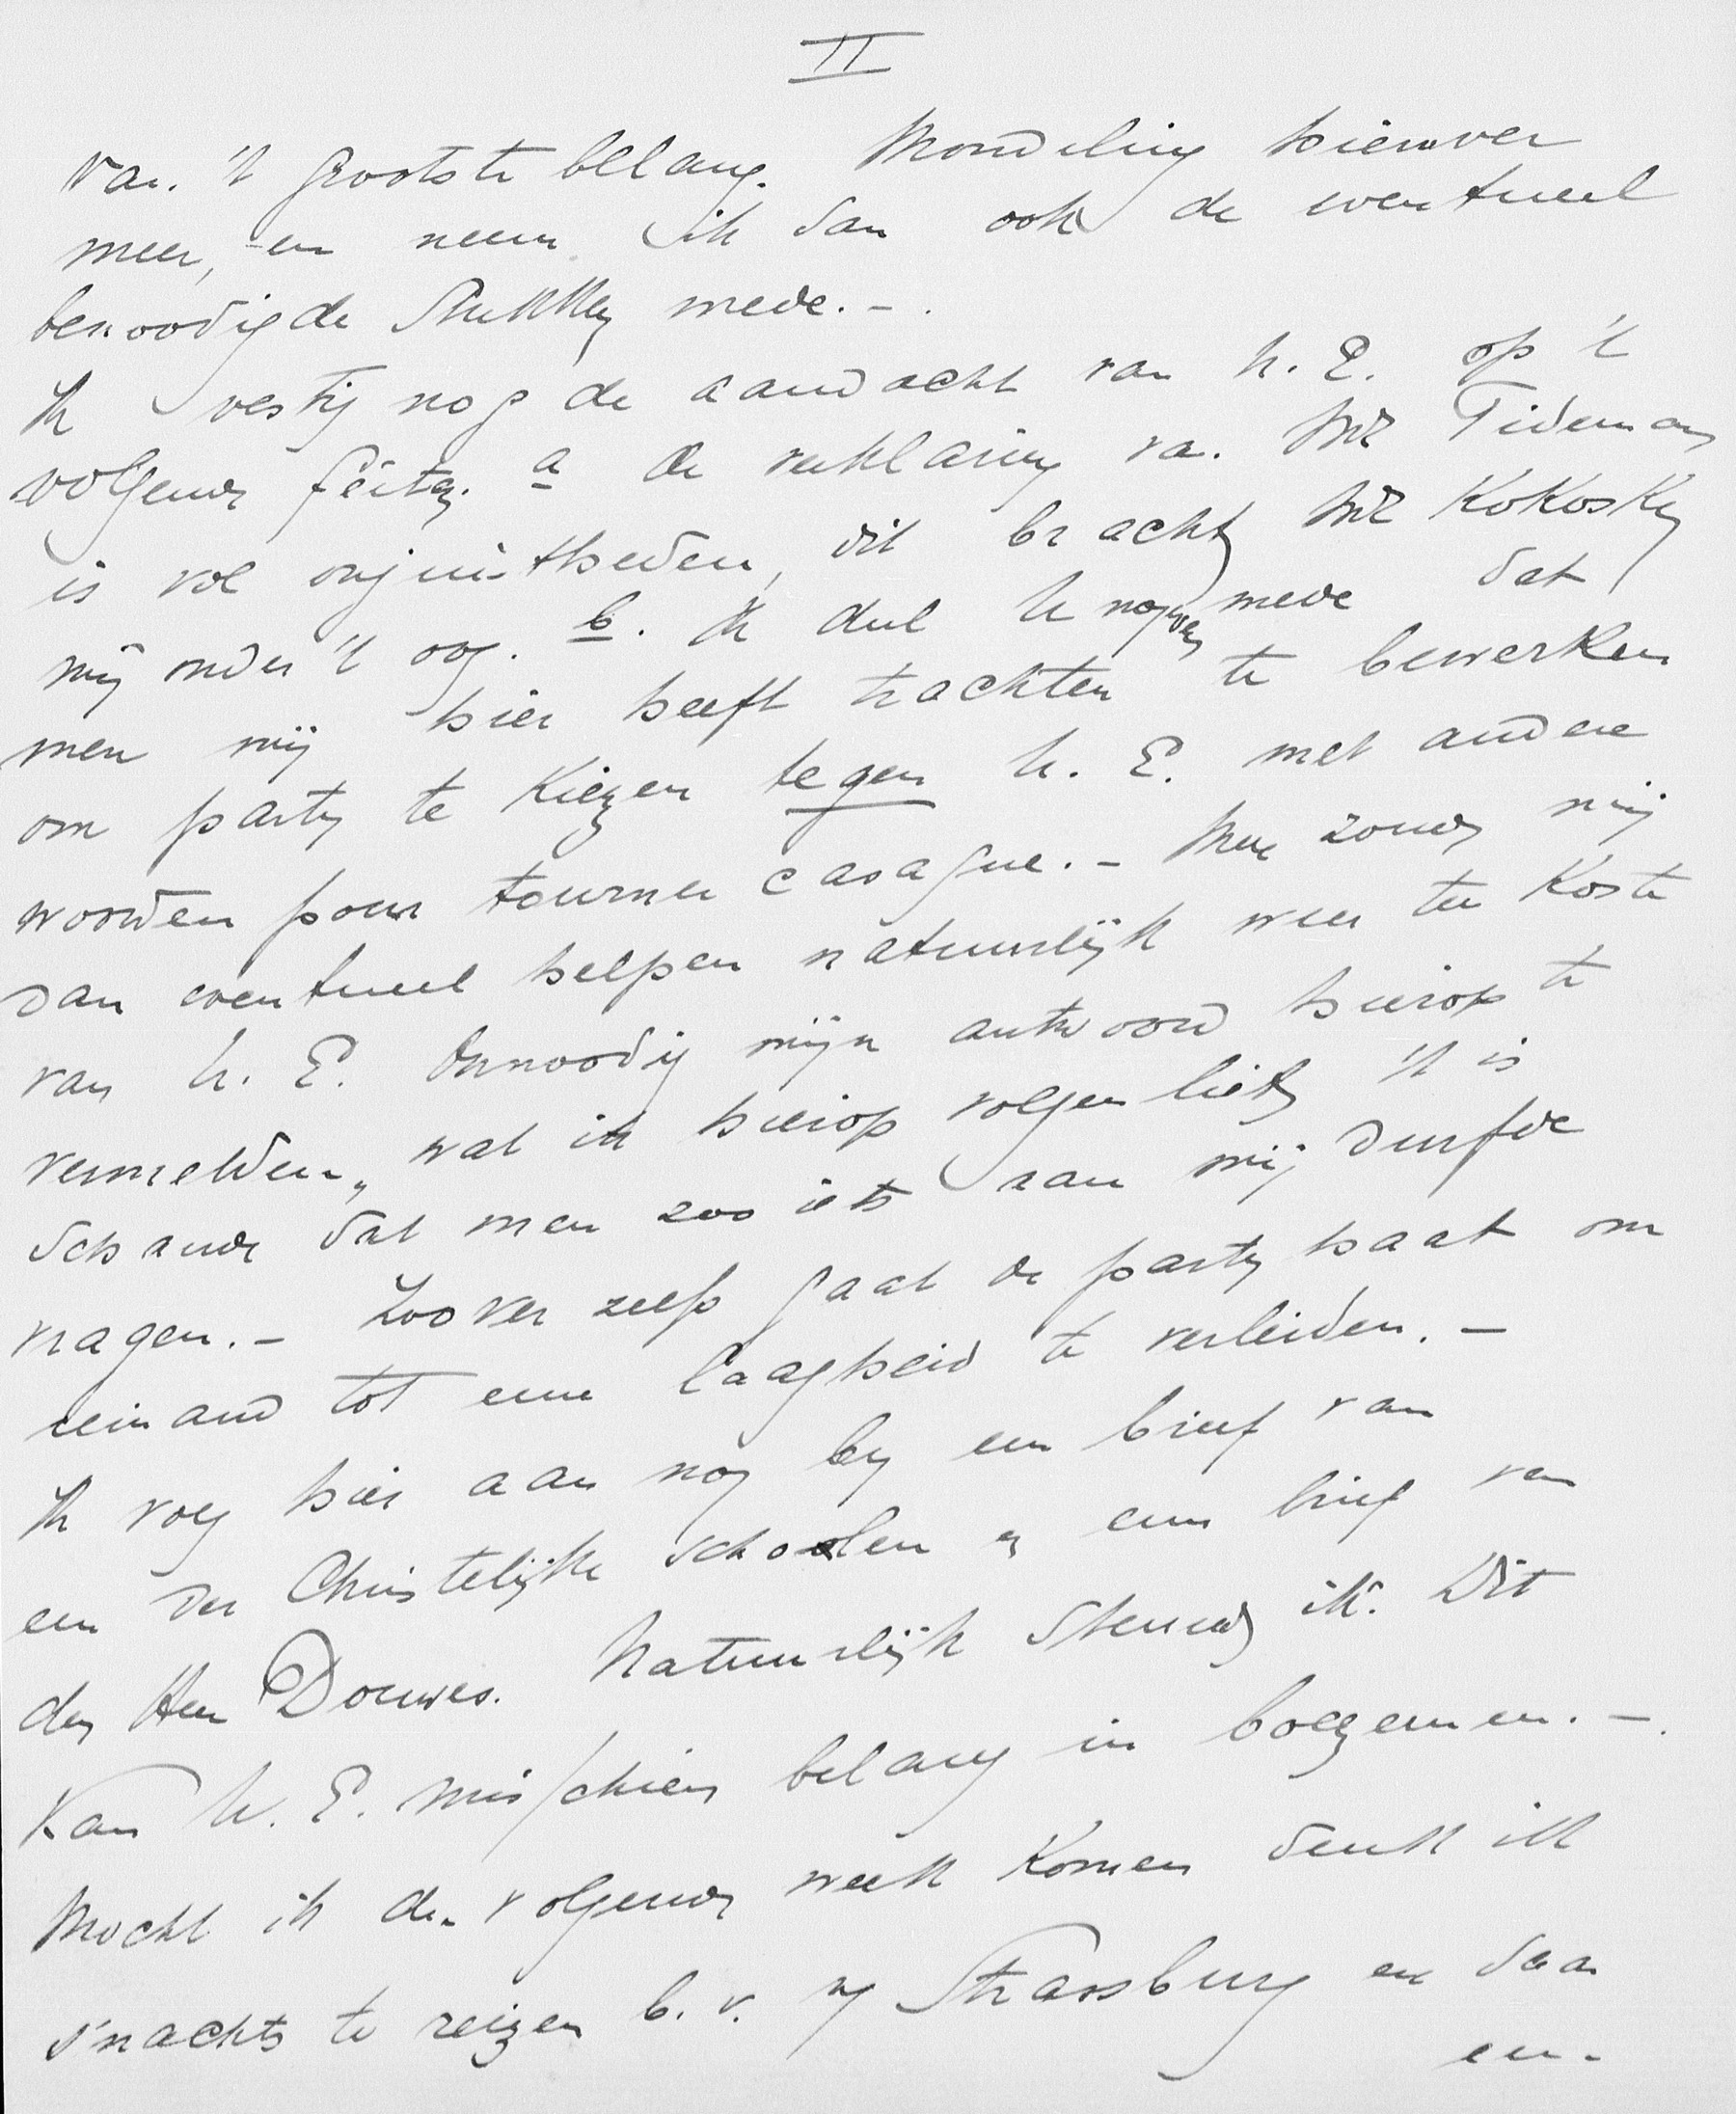 II
van 't grootste belang. Mondeling hierover
meer, en neem ik dan ook de eventueel
benoodigde stukken mede. - .
Ik vestig nog de aandacht van U. E. op 't
volgende feiten. a de verklaring van Mr Tideman
is vol onjuistheden, dit bracht Mr Kokosky
mij onder 't oog. b. Ik deel U nogwel mede dat
men mij hier heeft trachten te bewerken
om party te kiezen tegen U. E. met andere
woorden pour tourner casaque. - Men zoude mij
dan eventueel helpen natuurlijk weer ten koste
van U. E. Onnoodig mijn antwoord hierop te
vermelden, wat ik hierop volgen liet, 't is
schande dat men zoo iets aan mij durfde
vragen. - Zoo ver zelfs gaat de party haat om
iemand tot eene laagheid te verleiden. -
Ik voeg hier aan nog by een brief van
een der Christelijke schoolen en een brief van
den Heer Douwes. Natuurlijk steunde ik. Dit
kan U. E. misschien belang in boezemen. - .
Mocht ik de volgende week komen denk ik
s'nachts te reizen b. v. Strassburg en daar
en -